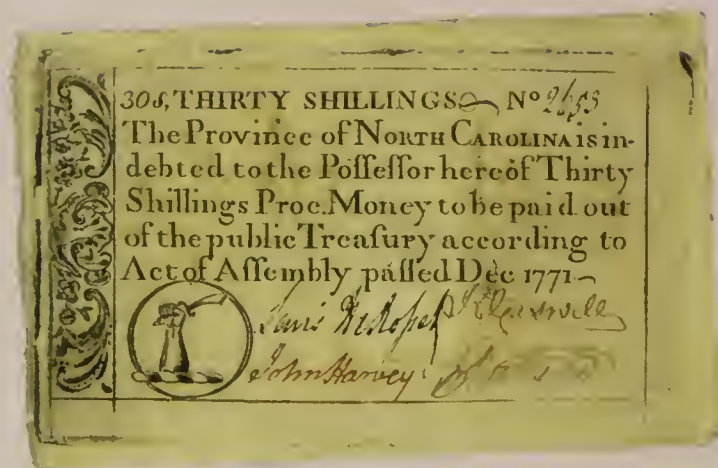 30s, THIRTY SHILLINGS No 2653
The Province of NORTH CAROLINA is in-
debted to the Poſſeſſor hereof Thirty
Shillings Proc. Money to be paid out
of the public Treaſury according to
Act of Aſſembly paſſed Dec 1771
Lewis DeRoſset
John Harvey